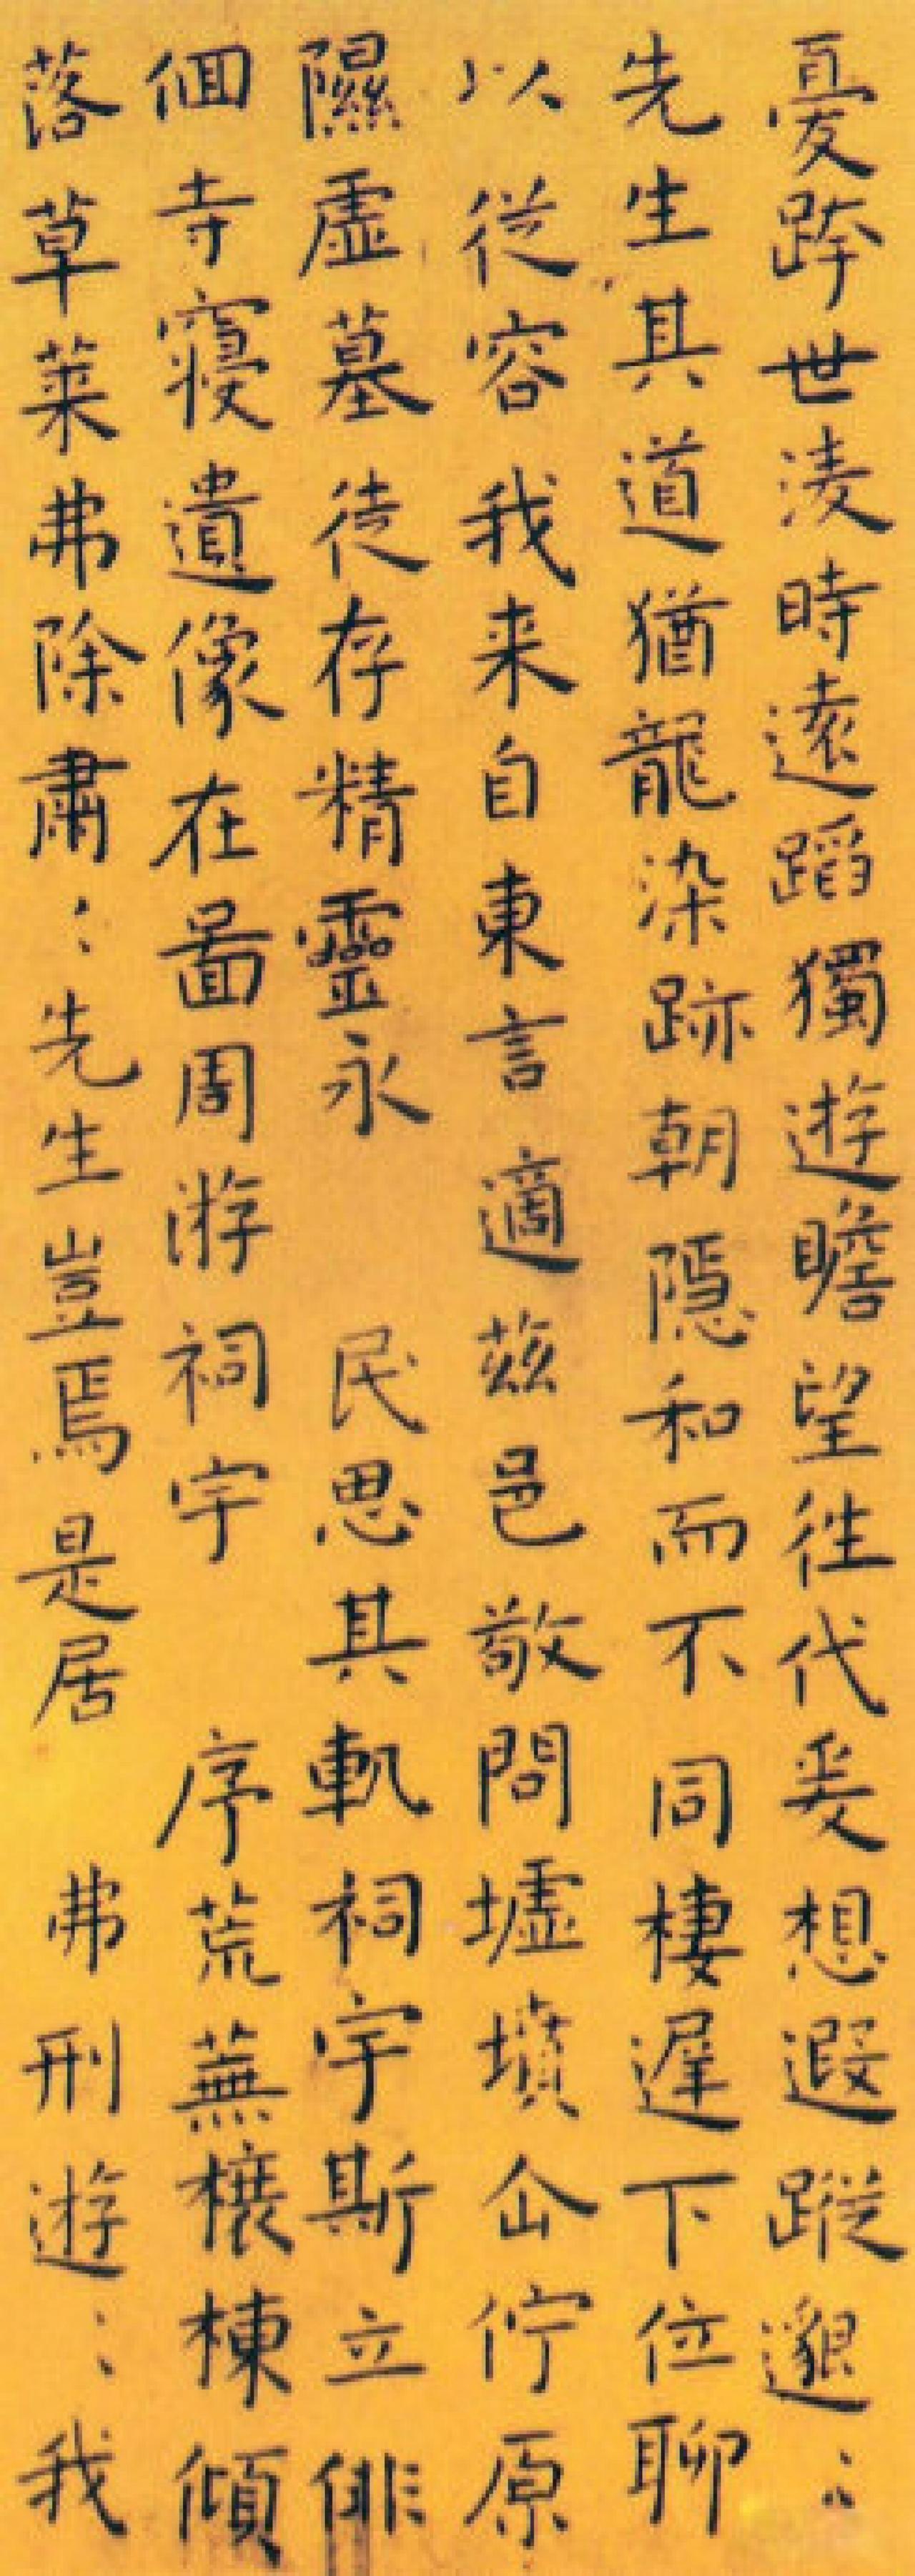 憂跨世淩時遠蹈獨遊瞻望往代爰想遐蹤邈〻
先生其道猶龍染跡朝隱和而不同棲遲下位聊
以從容我来自東言適茲邑敬問墟墳企佇原
隰虛墓徒存精靈永 民思其軌祠宇斯立俳
佪寺寢遺像在圖周游祠宇 序荒蕪榱棟傾
落草莱弗除肅〻先生豈焉是居 弗刑遊〻我